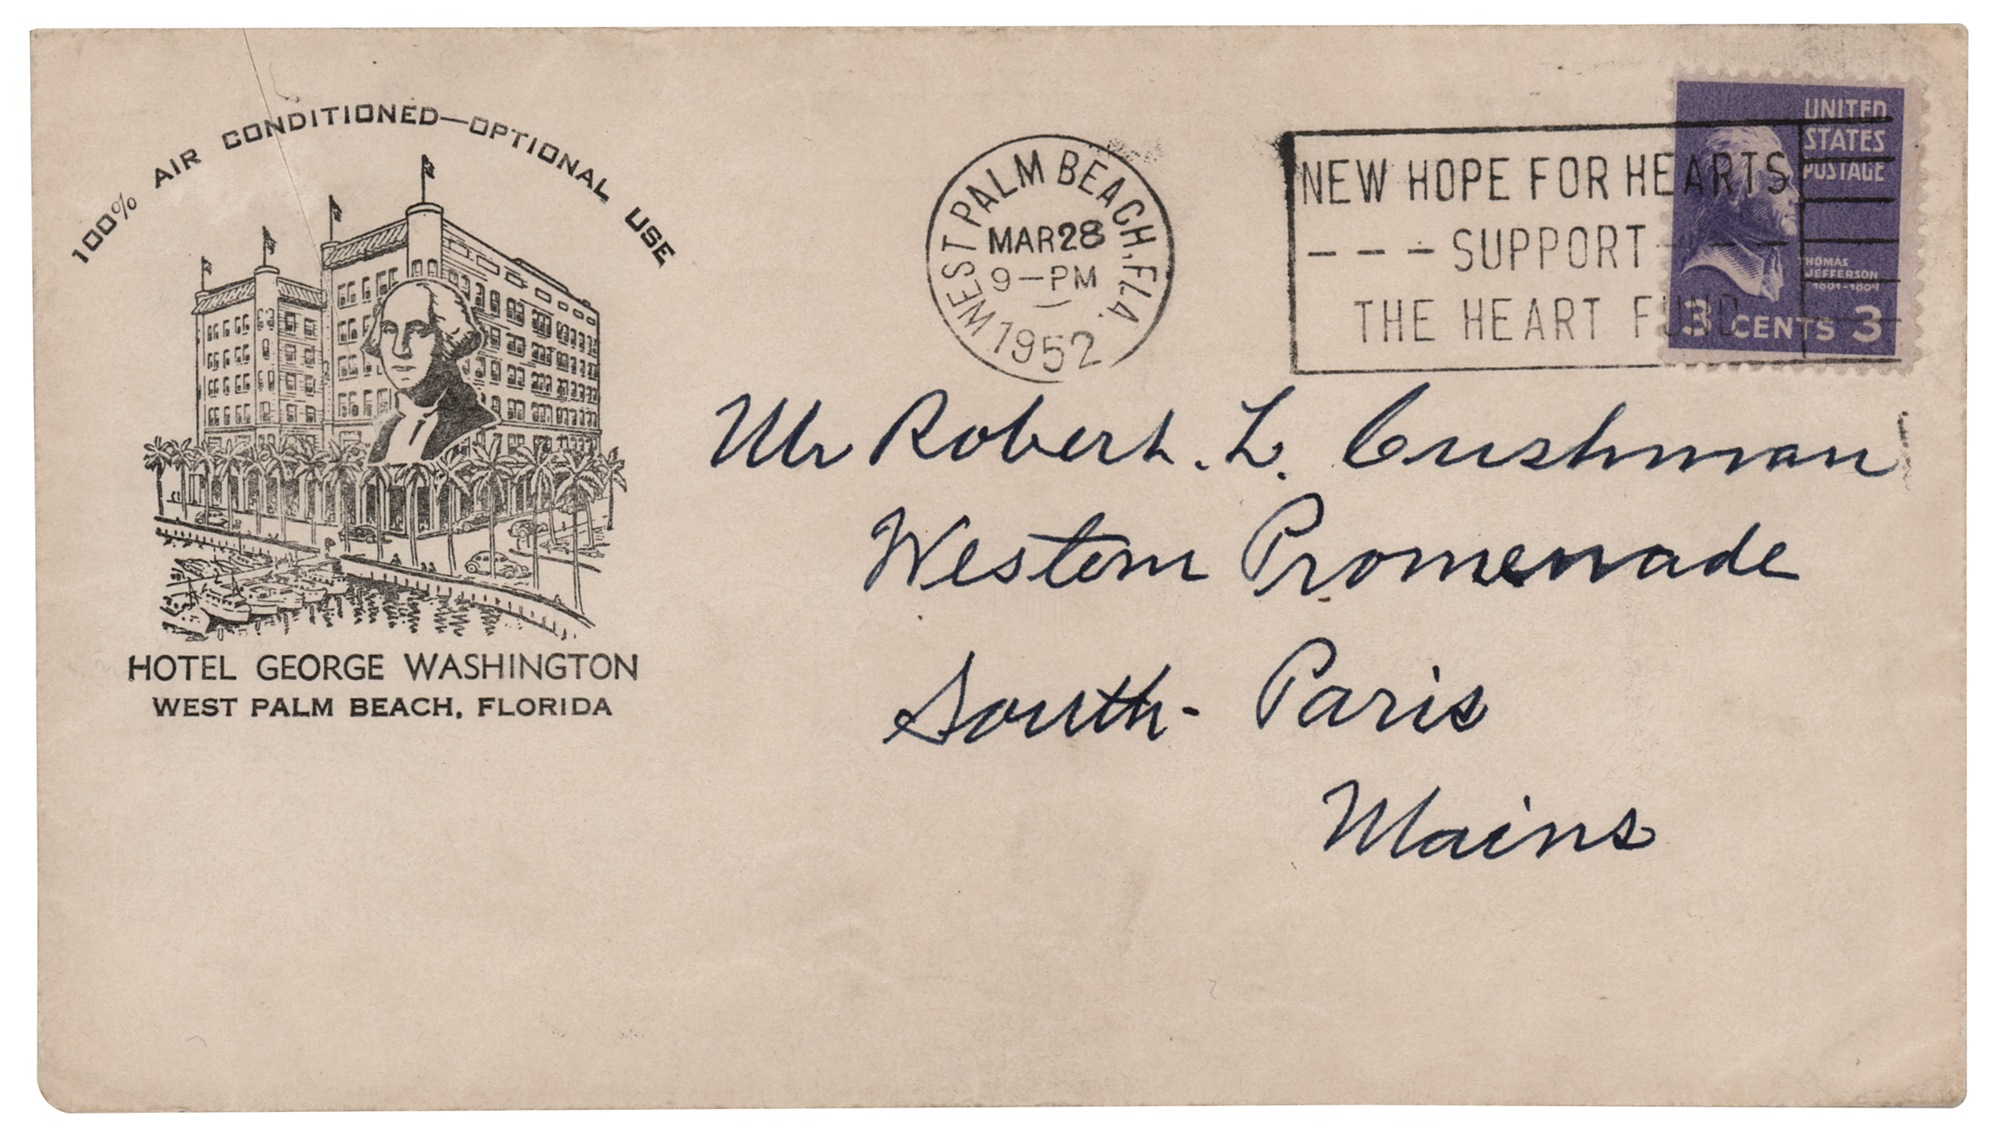 100% AIR CONDITIONED—OPTIONAL USE
HOTEL GEORGE WASHINGTON
WEST PALM BEACH, FLORIDA
WEST PALM BEACH, FLA.
MAR 28
9-PM
1952
NEW HOPE FOR HEARTS
- - - SUPPORT - - -
THE HEART FUND
UNITED
STATES
POSTAGE
THOMAS
JEFFERSON
1801-1809
3 CENTS 3
Mr Robert. L. Cushman
Western Promenade
South- Paris
Maine